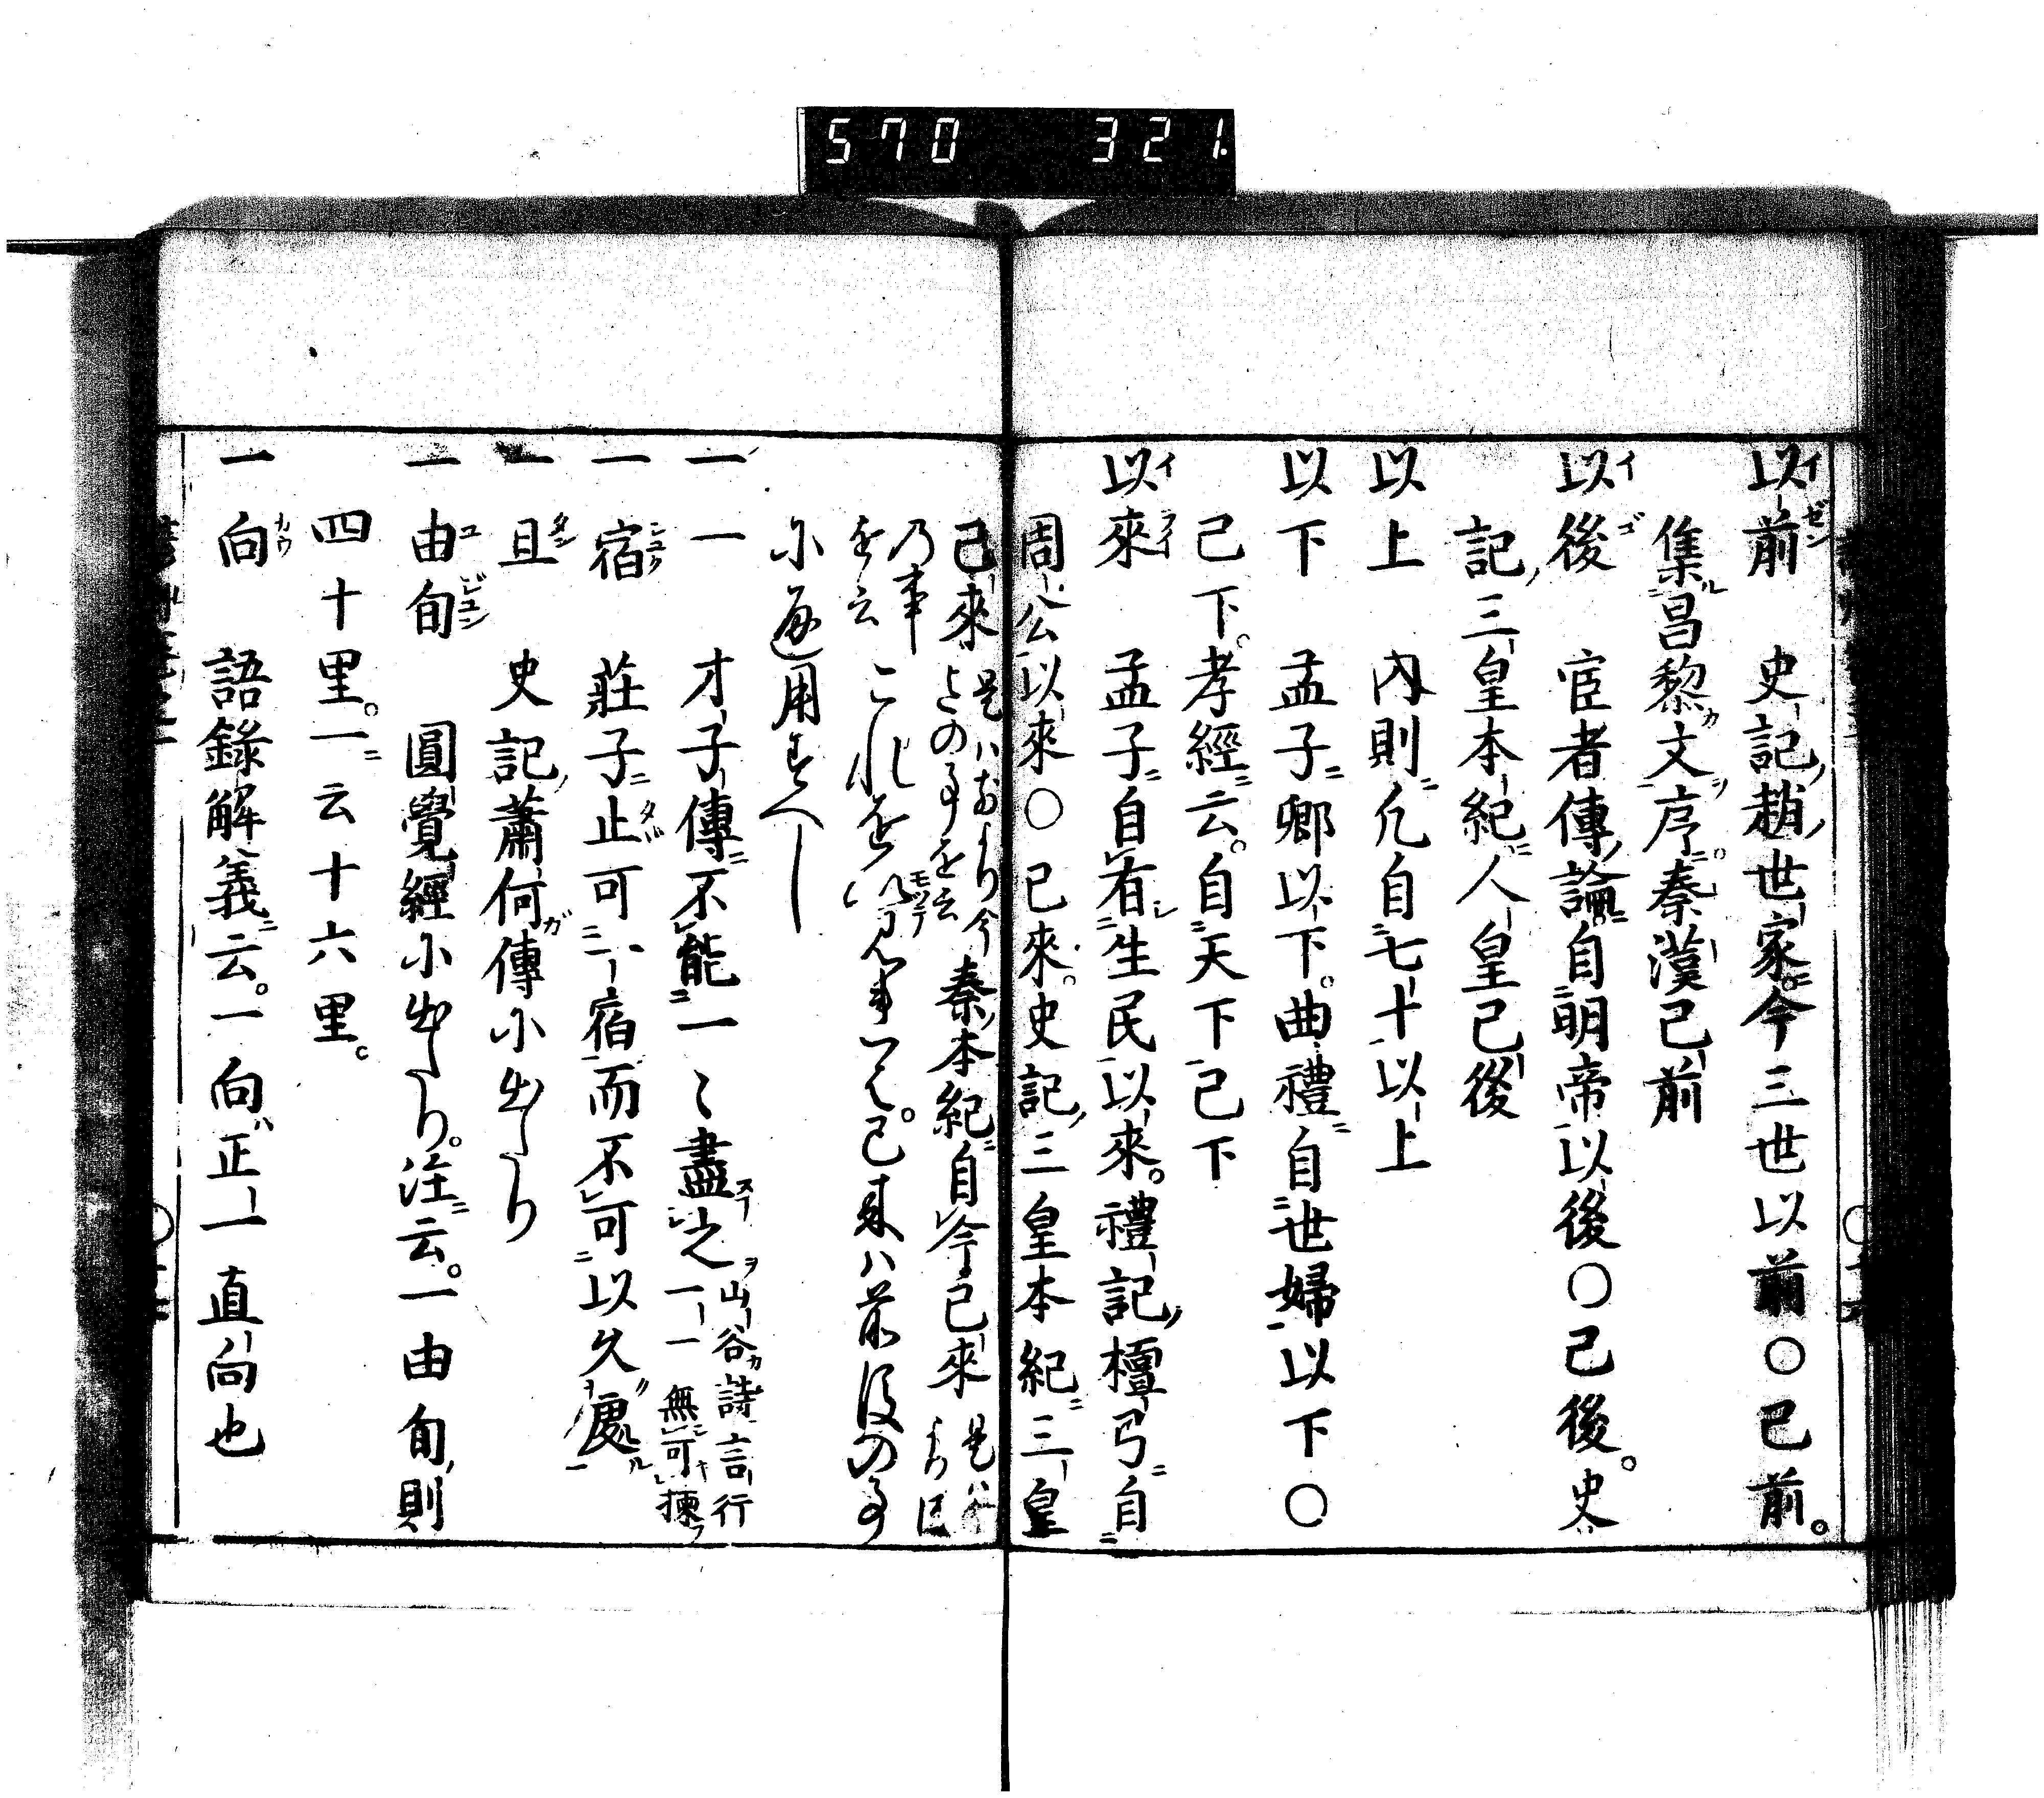 570 321.
以前 史記趙世家今三世以前〇已前。
集昌黎文序秦漢已前
以後 宦者傳論自明帝以後〇已後。史
記三皇本紀人皇已後
以上 內則凡自七十以上
以下 孟子卿以下。曲禮自世婦以下〇
已下。孝經云。自天下已下
以來 孟子自有生民以來。禮記檀弓自
周公以來〇已來。史記三皇本紀三皇
已來 是ハおより今
との事を云 秦本紀自今已來
乃事
を云 これを以見事しる。已来ハ前後の事
に通用すへし
一一 才子傳不能一〻盡之 山谷詩言行
一一無可揀
一宿 莊子止可一宿而不可以久處
一旦 史記蕭何傳に出たり
一由旬 圓覺經に出たり。注云。一由旬則
四十里。一云十六里。
一向 語錄解義云。一向正一直向也